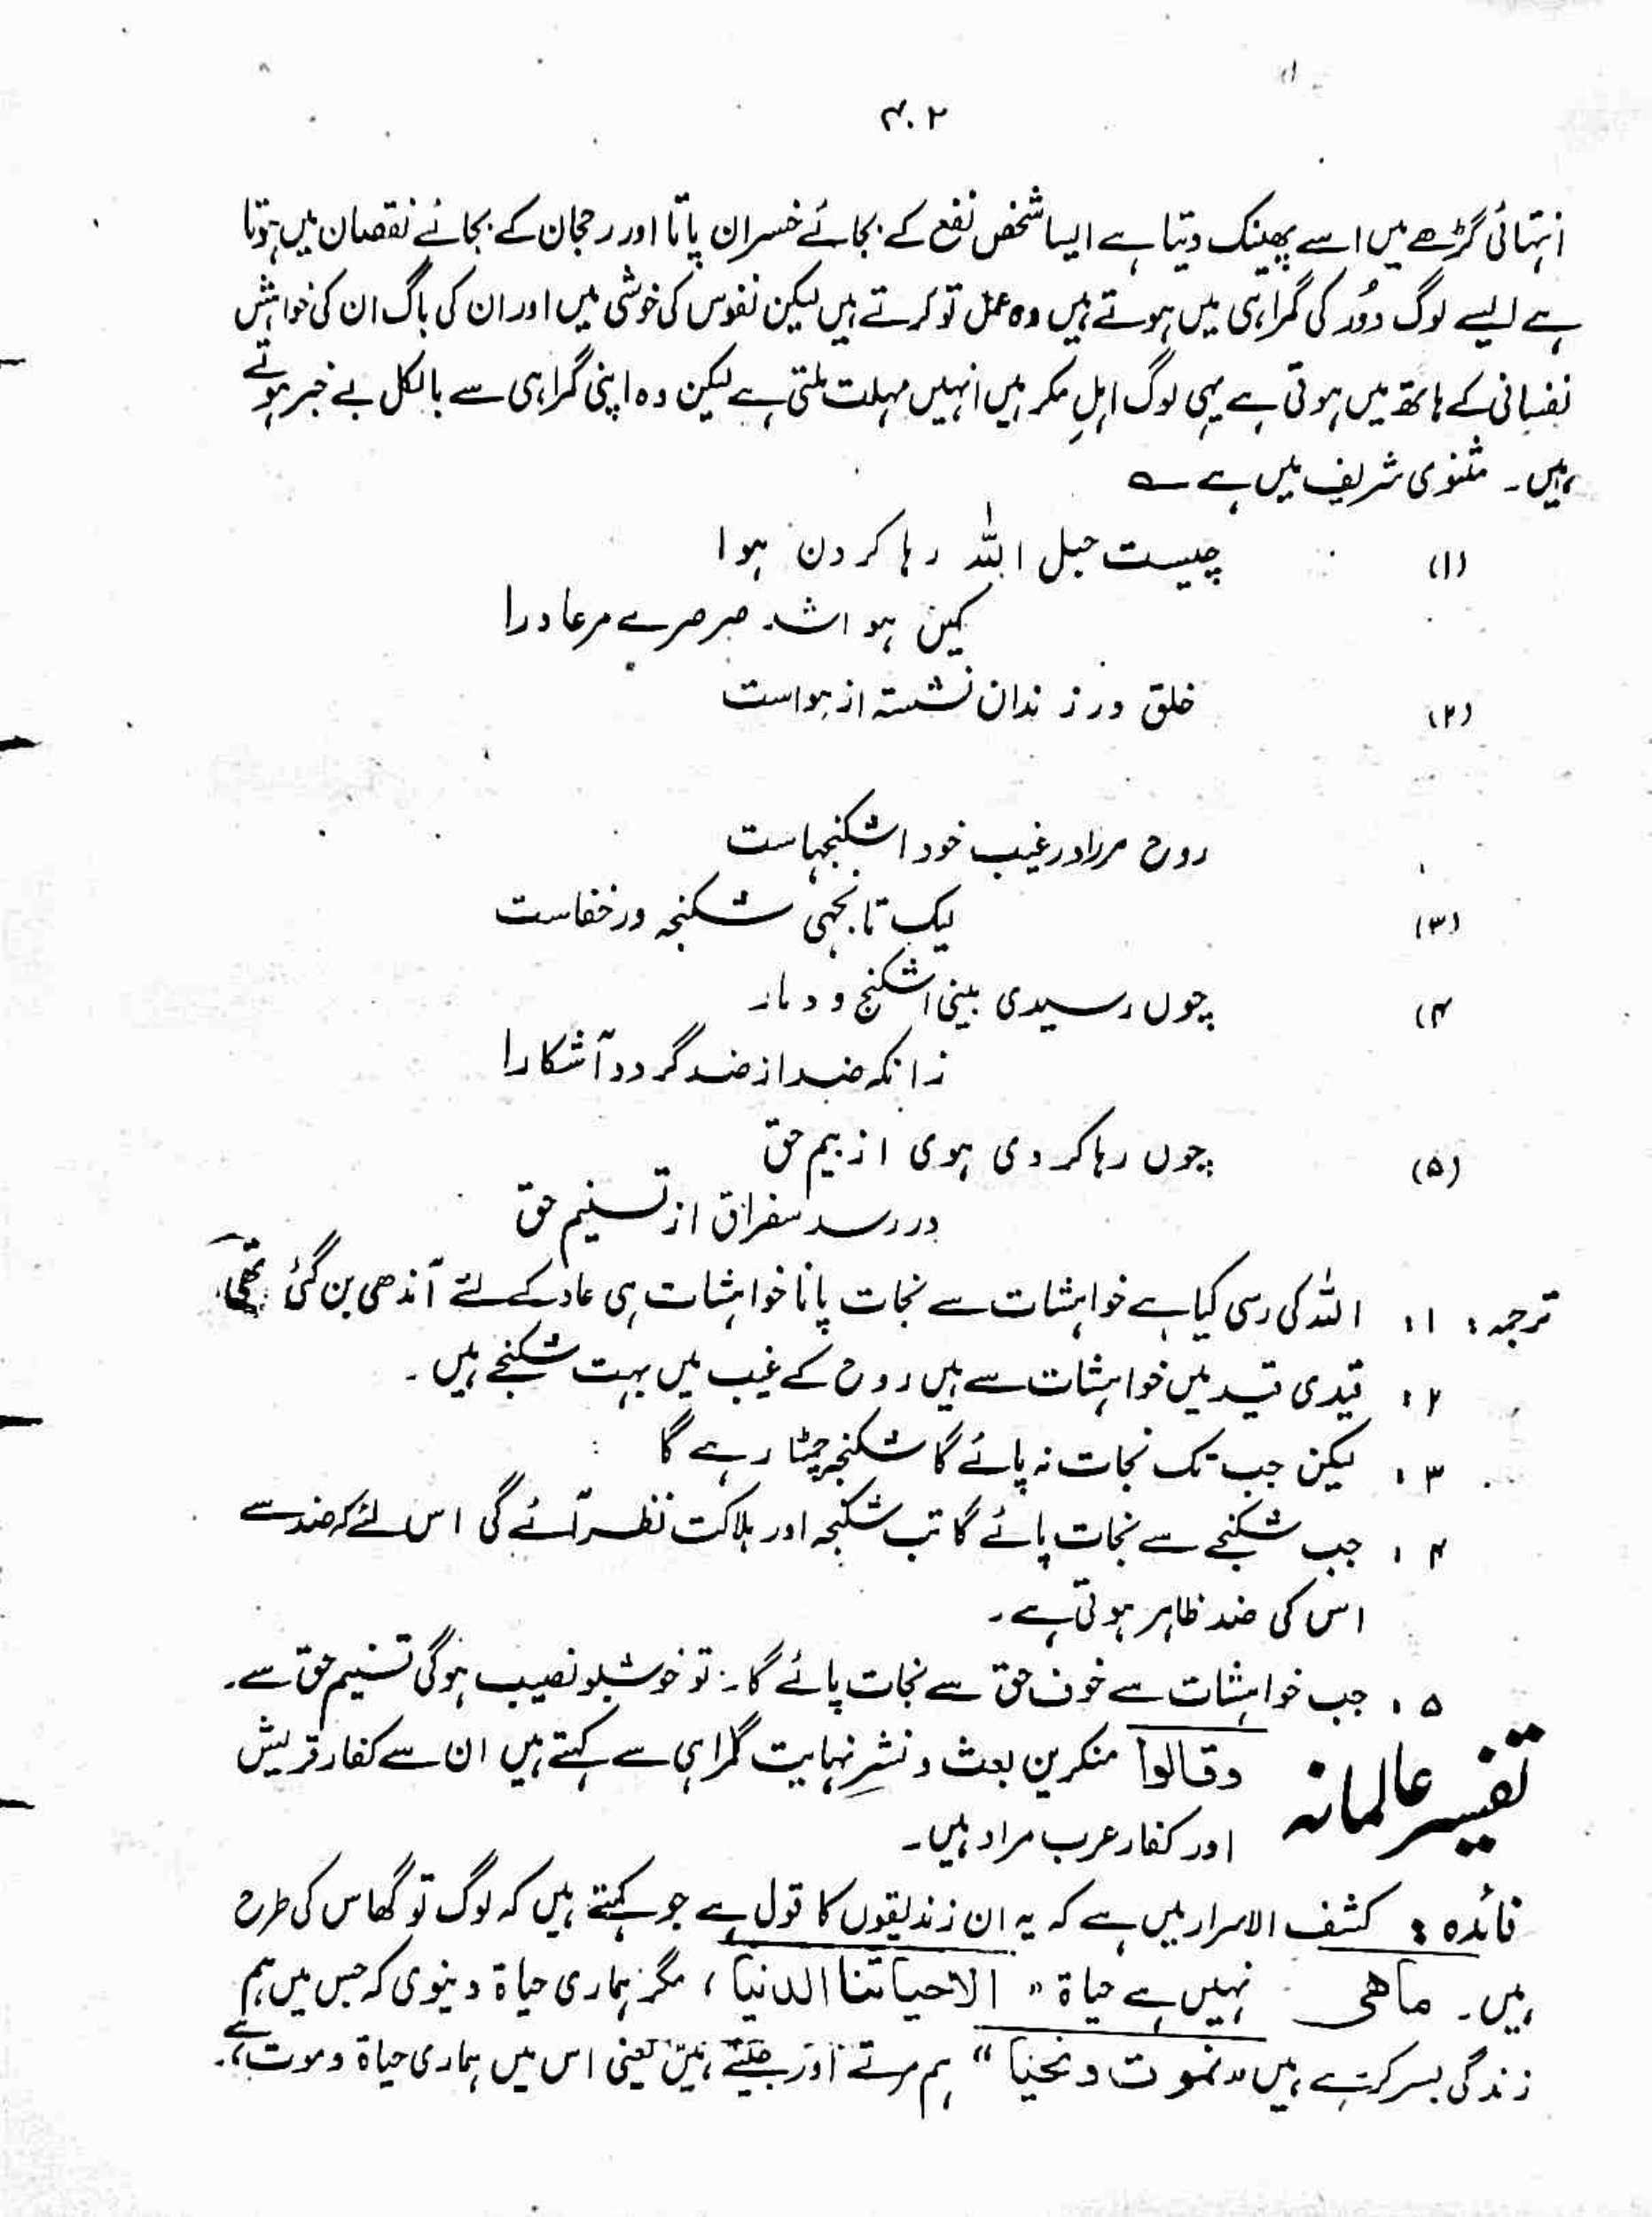 ۴۰۲
انتہائی گڑھے میں اسے پھینک دیتا ہے ایسا شخص نفع کے بجائے خسران پاتا اور رحجان کے بجائے نقصان میں ہوتا
ہے ایسے لوگ دُور کی گمراہی میں ہوتے ہیں وہ عمل تو کرتے ہیں لیکن نفوس کی خوشی میں اور ان کی باگ ان کی خواہش
نفسانی کے ہاتھ میں ہوتی ہے یہی لوگ اہلِ مکر ہیں انہیں مہلت ملتی ہے لیکن وہ اپنی گمراہی سے بالکل بے خبر ہوتے
ہیں۔ مثنوی شریف میں ہے ؎
(۱) چیست حبل اللہ رہا کردن ہوا
کین ہوا شد صرصرے مرعادرا
(۲) خلق در زندان نشستہ از ہواست
روح مررا در غیب خود اشکنجہاست
(۳) لیک تا نجہی شکنجہ در خفاست
۴) چوں رسیدی بینی اشکنج و دمار
زانکہ ضد از ضد گردد آشکارا
(۵) چوں رہا کردی ہوی از بیم حق
در رسد سغراق از تسنیم حق
ترجمہ: ۱: اللہ کی رسی کیا ہے خواہشات سے نجات پانا خواہشات ہی عاد کے لئے آندھی بن گئی تھی
۲: قیدی قید میں خواہشات سے ہیں روح کے غیب میں بہت شکنجے ہیں۔
۳: لیکن جب تک نجات نہ پائے گا شکنجہ چمٹا رہے گا
۴: جب شکنجے سے نجات پائے گا تب شکنجہ اور ہلاکت نظر آئے گی اس لئے کہ ضد سے
اس کی ضد ظاہر ہوتی ہے۔
۵: جب خواہشات سے خوف حق سے نجات پائے گا۔ تو خوشبو نصیب ہوگی تسنیم حق سے۔
تفسیر عالمانہ وقالوا منکرین بعث و نشر نہایت گمراہی سے کہتے ہیں ان سے کفار قریش
اور کفار عرب مراد ہیں۔
فائدہ: کشف الاسرار میں ہے کہ یہ ان زندیقوں کا قول ہے جو کہتے ہیں کہ لوگ تو گھاس کی طرح
ہیں۔ ماھی نہیں ہے حیاۃ " الاحیاتنا الدنیا، مگر ہماری حیاۃ دینوی کہ جس میں ہم
زندگی بسر کرتے ہیں "نموت ونحیا" ہم مرتے اور جیتے ہیں یعنی اس میں ہماری حیاۃ و موت ہے،